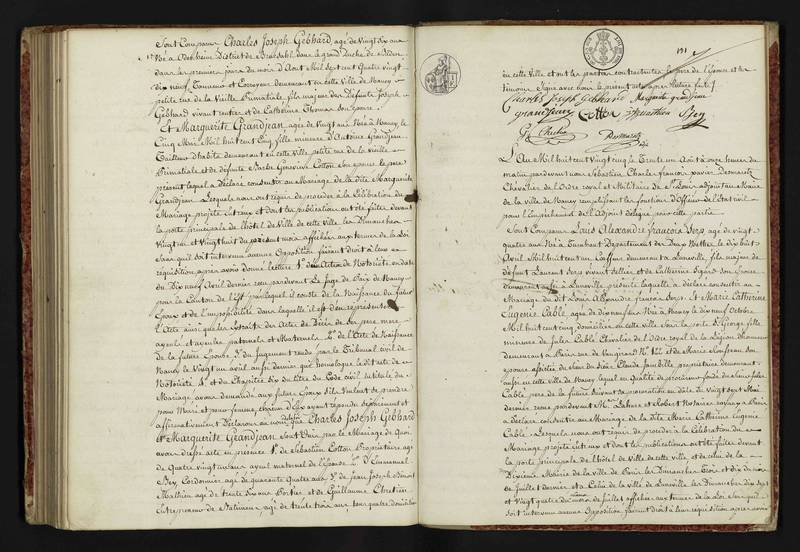 Sont Comparus Charles Joseph Gebhard, agé de Vingt Six ans
dans les premiers jours du mois d'Aout Mil Sept cent Quatre vingt
dix neuf, demeurant en cette Ville de Nancy
petite rue de la Vieille Primatiale, fils majeur des Défunts Joseph
Gebhard vivant rentier et de Catherine Thomas son épouse.
Et Marguerite Grandjean agée de Vingt ans Née à Nancy le
Cinq Mil huit cent Cinq, fille mineure d'Antoine Grandjean
Tailleur d'habits demeurant en cette Ville petite rue de la Vieille
Primatiale et de défunte Barbe Geneviève Cotton son épouse le père
présent lequel a déclaré consentir au Mariage de la dite Marguerite
Grandjean Lesquels nous ont requis de procéder à la Célébration du
Mariage projeté entr'eux et dont les publications ont été faites devant
la porte principale de l'hôtel de Ville de cette ville les Dimanches
Vingt un et Vingt huit du présent mois affichées aux termes de la Loi
Sans qu'il soit intervenu aucune Opposition faisant droit à leur
réquisition après avoir donné lecture 1° de Notoriété en date
du Dix neuf Avril dernier reçu pardevant Le Juge de Paix de Nancy
pour le Canton de l'Est par lequel il conste de la Naissance du futur
Epoux et de l'impossibilité dans laquelle il est d'en représenter
l'Acte ainsi que les extraits des Actes de Décès de ses père mère
ayeuls et ayeules paternels et Maternels de l'Acte de Naissance
de la future Epouse du Jugement rendu par le Tribunal civil de
Nancy le Vingt un avril aussi dernier qui homologue le dit acte de
Notoriété et du Chapitre Six du titre du Code civil intitulé du
Mariage avons demandé aux futurs Epoux s'ils Veulent se prendre
pour Mari et pour femme, chacun d'Eux ayant répondu séparément et
affirmativement Déclarons au nom de la Loi que Charles Joseph Gebhard
et Marguerite Grandjean sont Unis par le Mariage De quoi
avons dressé acte en présence de Sébastien Cotton Propriétaire agé
de Quatre Vingt un ans ayeul maternel de l'épouse d'Emmanuel
Bey, Cordonnier agé de quarante Quatre ans de Jean Joseph
Mathieu agé de trente Six ans Portier et de Guillaume Chretien
Entrepreneur de Bâtimens agé de trente trois ans tous quatre domiciliés
191
en cette Ville et ont les parties contractantes le père de l'Epouse et les
témoins Signé avec Nous le présent acte après lecture faite
Charles Joseph Gebhard Marguerite grandjean
grandjean Cotton Bey
L'An Mil huit cent Vingt cinq le Trente un Août à onze heures du
matin pardevant nous Sébastien Charles françois xavier Desmaretz
Chevalier de l'Ordre royal et Militaire de St Louis adjoint au Maire
de la Ville de Nancy remplissant les fonctions D'officier de l'Etat civil
pour l'empêchement de l'Adjoint délégué pour cette partie
Sont Comparus Louis Alexandre françois Sers agé de vingt
quatre ans Né à Département des Deux Nethes le dix huit
Avril Mil huit cent un, Coiffeur demeurant à Lunéville, fils majeur de
défunt Laurent Sers vivant Sellier et de Catherine son Epouse
demeurant à Lunéville présente laquelle a déclaré consentir au
Mariage du dit Louis Alexandre françois Sers Et Marie Catherine
Eugenie Cablé, agée de dix neuf ans Née à Nancy le dix neuf Octobre
Mil huit cent Cinq domiciliée en cette Ville Sous la porte St George fille
mineure de Jules Cablé Chevalier de l'Ordre royal de la Légion d'honneur
demeurant à Paris rue de Vaugirard et de Marie
épouse assistée de Claude propriétaire demeurant
aussi en cette Ville de Nancy lequel en Qualité de procureur fondé du Sieur Jules
Cablé père de la future suivant sa procuration en date du Vingt sept Mai
dernier reçue pardevant Mes et Robert Notaires royaux à Paris
a déclaré consentir au Mariage de la dite Marie Catherine Eugenie
Cablé Lesquels nous ont requis de procéder à la Célébration du
Mariage projeté entr'eux et dont les publications ont été faites devant
la porte principale de l'hôtel de Ville de cette ville et de celui de la
Dixième Mairie de la Ville de Paris les Dimanches Trois et dix
de Juillet dernier et à Celui de la Ville de Lunéville les Dimanches dix sept
et vingt quatre du mois de Juillet affichées aux termes de la Loi Sans qu'il
Soit intervenu aucune Opposition faisant droit à leur réquisition après avoir